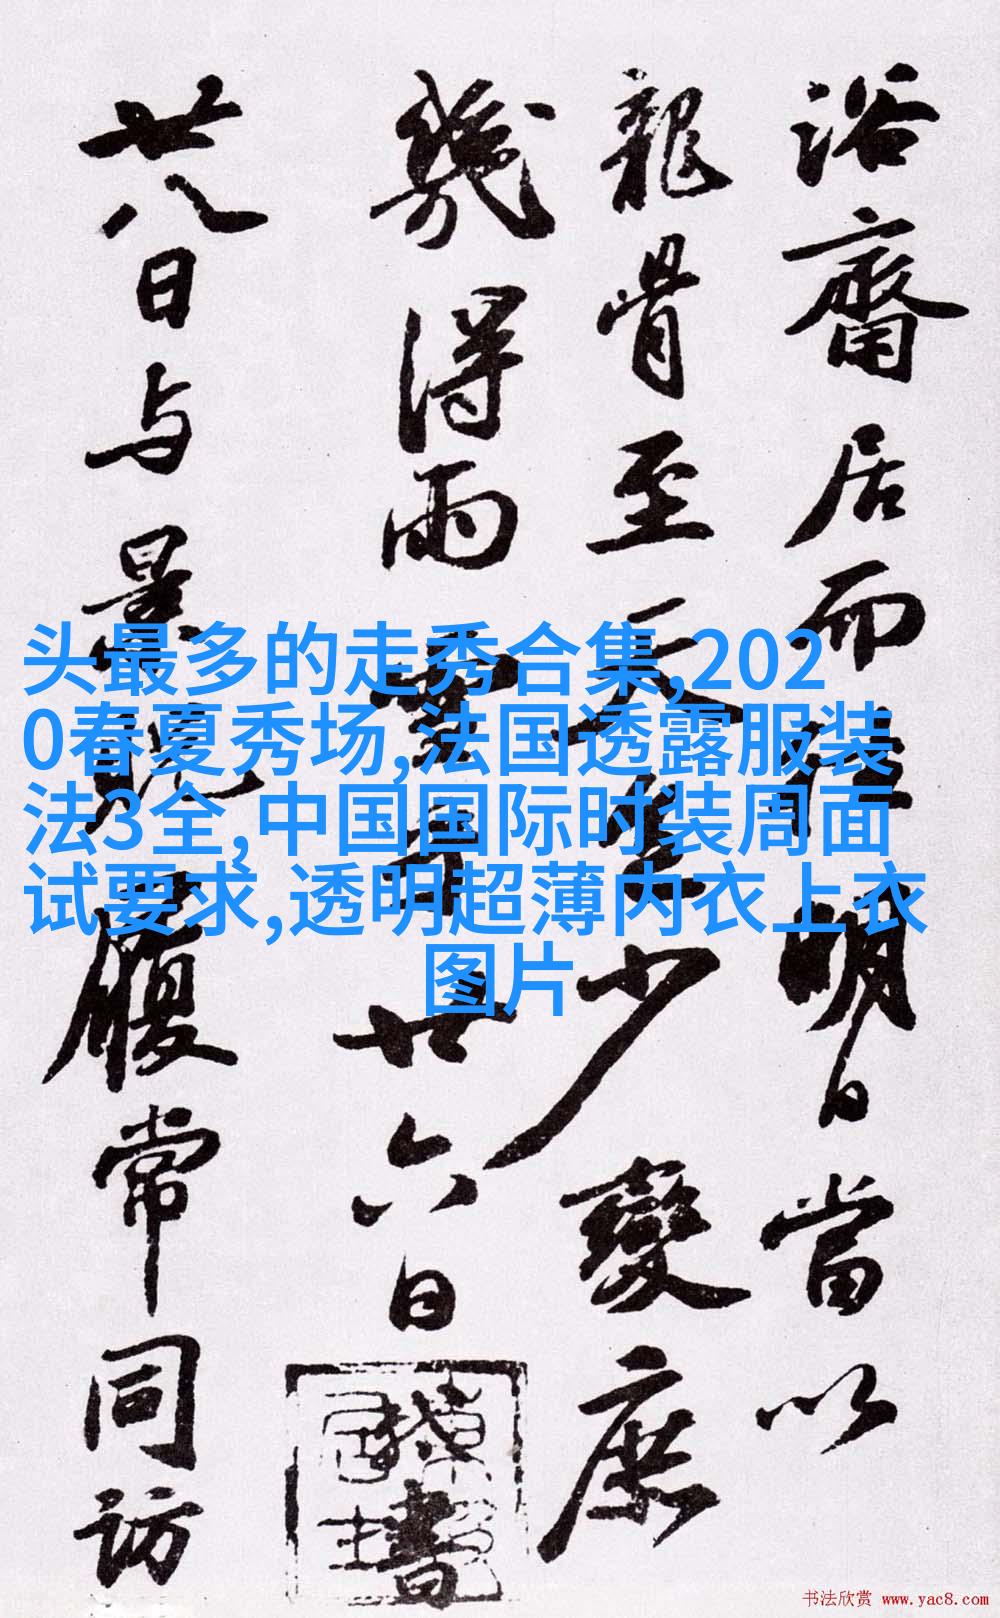 浴齋居而
明日當以
龍骨至天
少變庶
幾得雨
廿六日
書
廿八日与景
履常同访
头最多的走秀合集,202
0春夏秀场,法国透露服装
法3全,中国国际时装周面
试要求,透明超薄内衣上衣
图片
书法欣赏 www.yac8.com